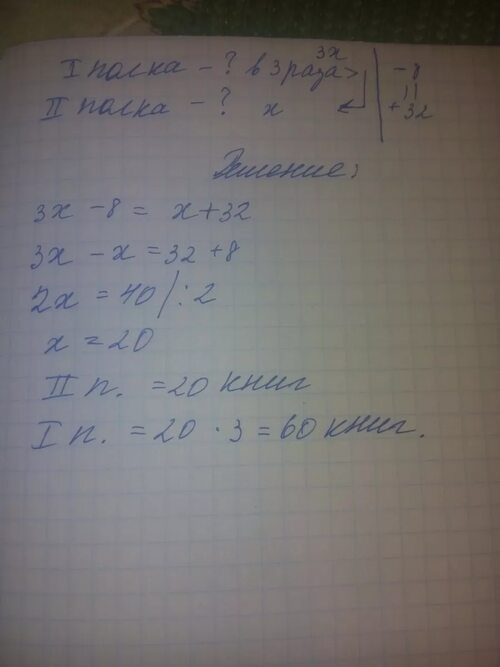 I полка - ? в 3 раза > 3x - 8
II полка - ? x + 32
Решение:
3x - 8 = x + 32
3x - x = 32 + 8
2x = 40 /: 2
x = 20
II п. = 20 книг
I п. = 20 · 3 = 60 книг.